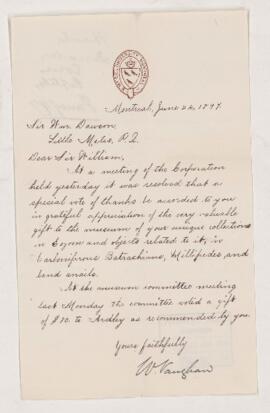 Montreal, June 24, 1897.
Sir Wm. Dawson,
Little Metis, P.Q.
Dear Sir William,
At a meeting of the Corporation
held yesterday it was resolved that a
special vote of thanks be accorded to you
in grateful appreciation of the very valuable
gift to the museum of your unique collections
in Eozoon and objects related to it, in
Carboniferous Batrachians, Millipedes and
land snails.
At the museum committee meeting
last Monday the committee voted a gift
of $10. to Ardley as recommended by you.
Yours faithfully
W. Vaughan